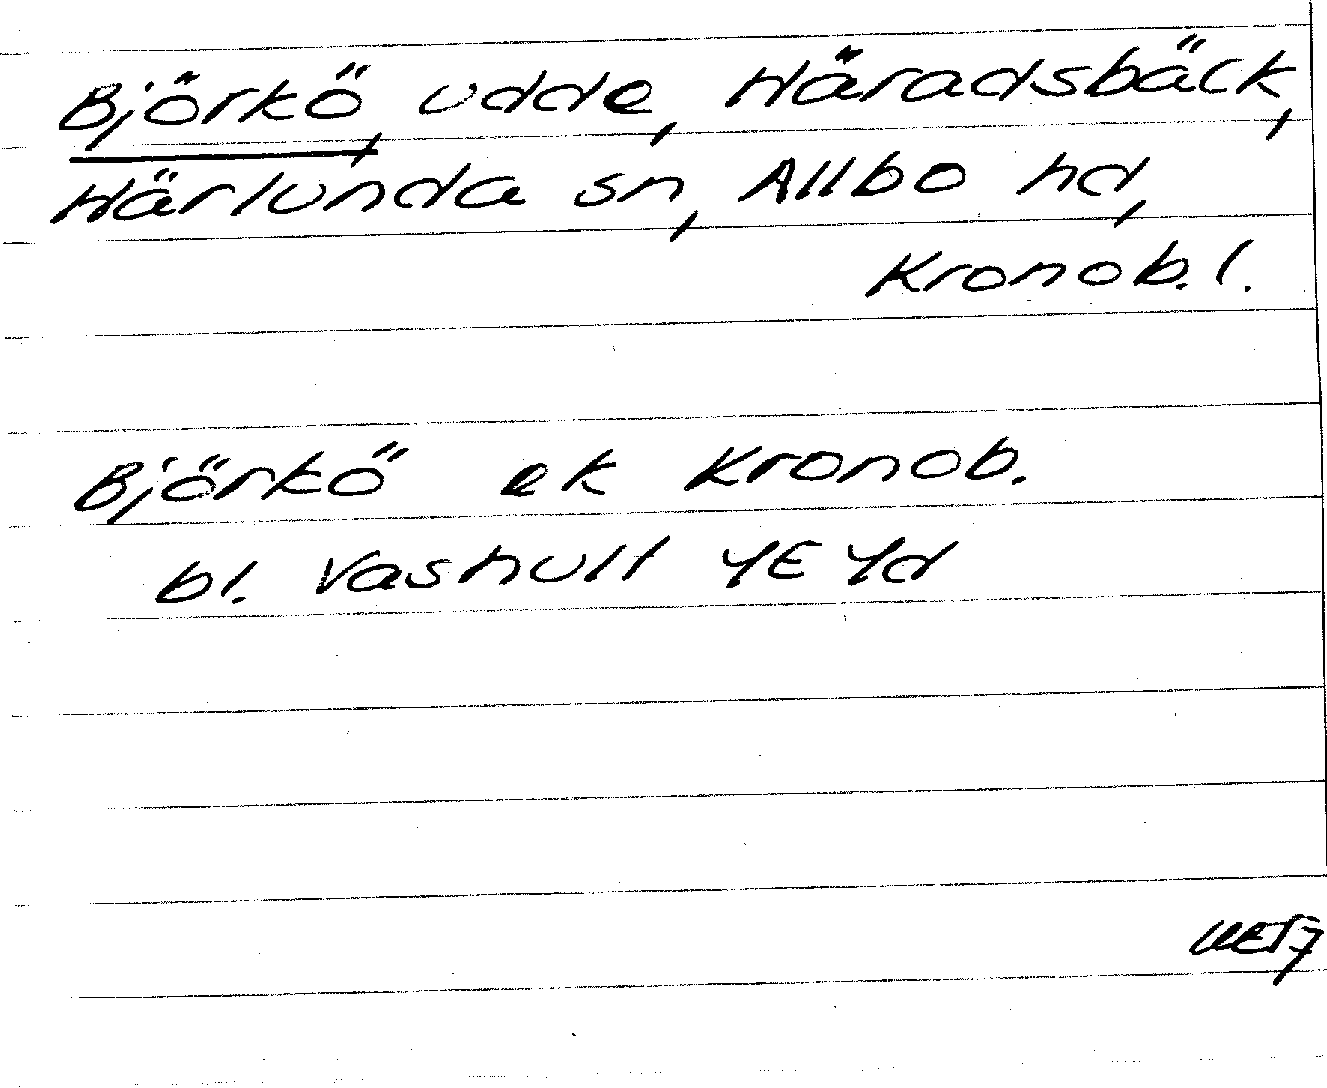 Björkö, udde, Häradsbäck,
Härlunda sn, Allbo hd,
Kronob. l.
Björkö ek Kronob.
bl. Vashult 4E 4d